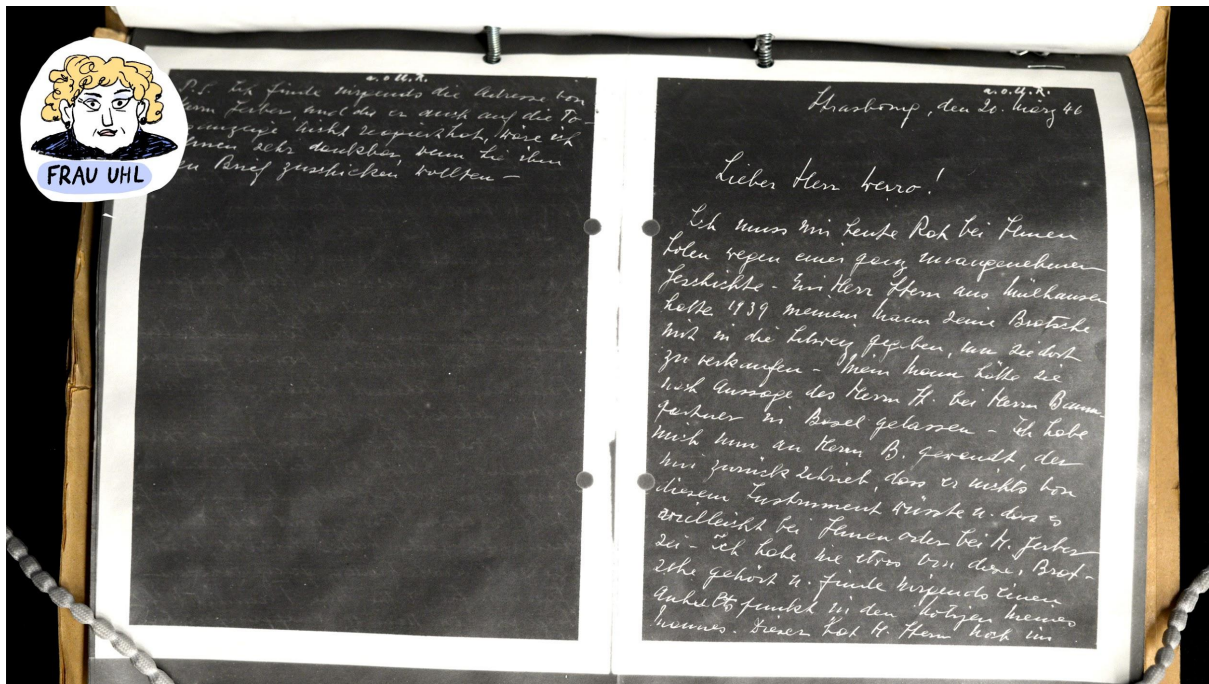 FRAU UHL
a.o.U.R.
P.S. Ich finde nirgends die Adresse von
Herrn und da er auch auf die To-
nicht reagiert hat, wäre ich
Ihnen sehr dankbar, wenn Sie ihm
den Brief zuschicken wollten –
a.o.U.R.
Strasbourg, den 20. März 46
Lieber Herr Werro!
Ich muss mir heute Rat bei Ihnen
holen wegen einer ganz unangenehmen
Geschichte – Ein Herr Stern aus Mülhausen
hatte 1939 meinem Mann seine Bratsche
mit in die Schweiz gegeben, um sie dort
zu verkaufen – Mein Mann hätte sie
nach Aussage des Herrn St. bei Herrn Baum-
gartner in Basel gelassen – Ich habe
mich nun an Herrn B. gewandt, der
mir zurück schrieb, dass er nichts von
diesem Instrument wüsste u. dass es
vielleicht bei Ihnen oder bei H.
sei – Ich habe nie etwas von dieser Brat-
sche gehört u. finde nirgends einen
Anhaltspunkt in den Notizen meines
Mannes. Dieser hat H. Stern noch im